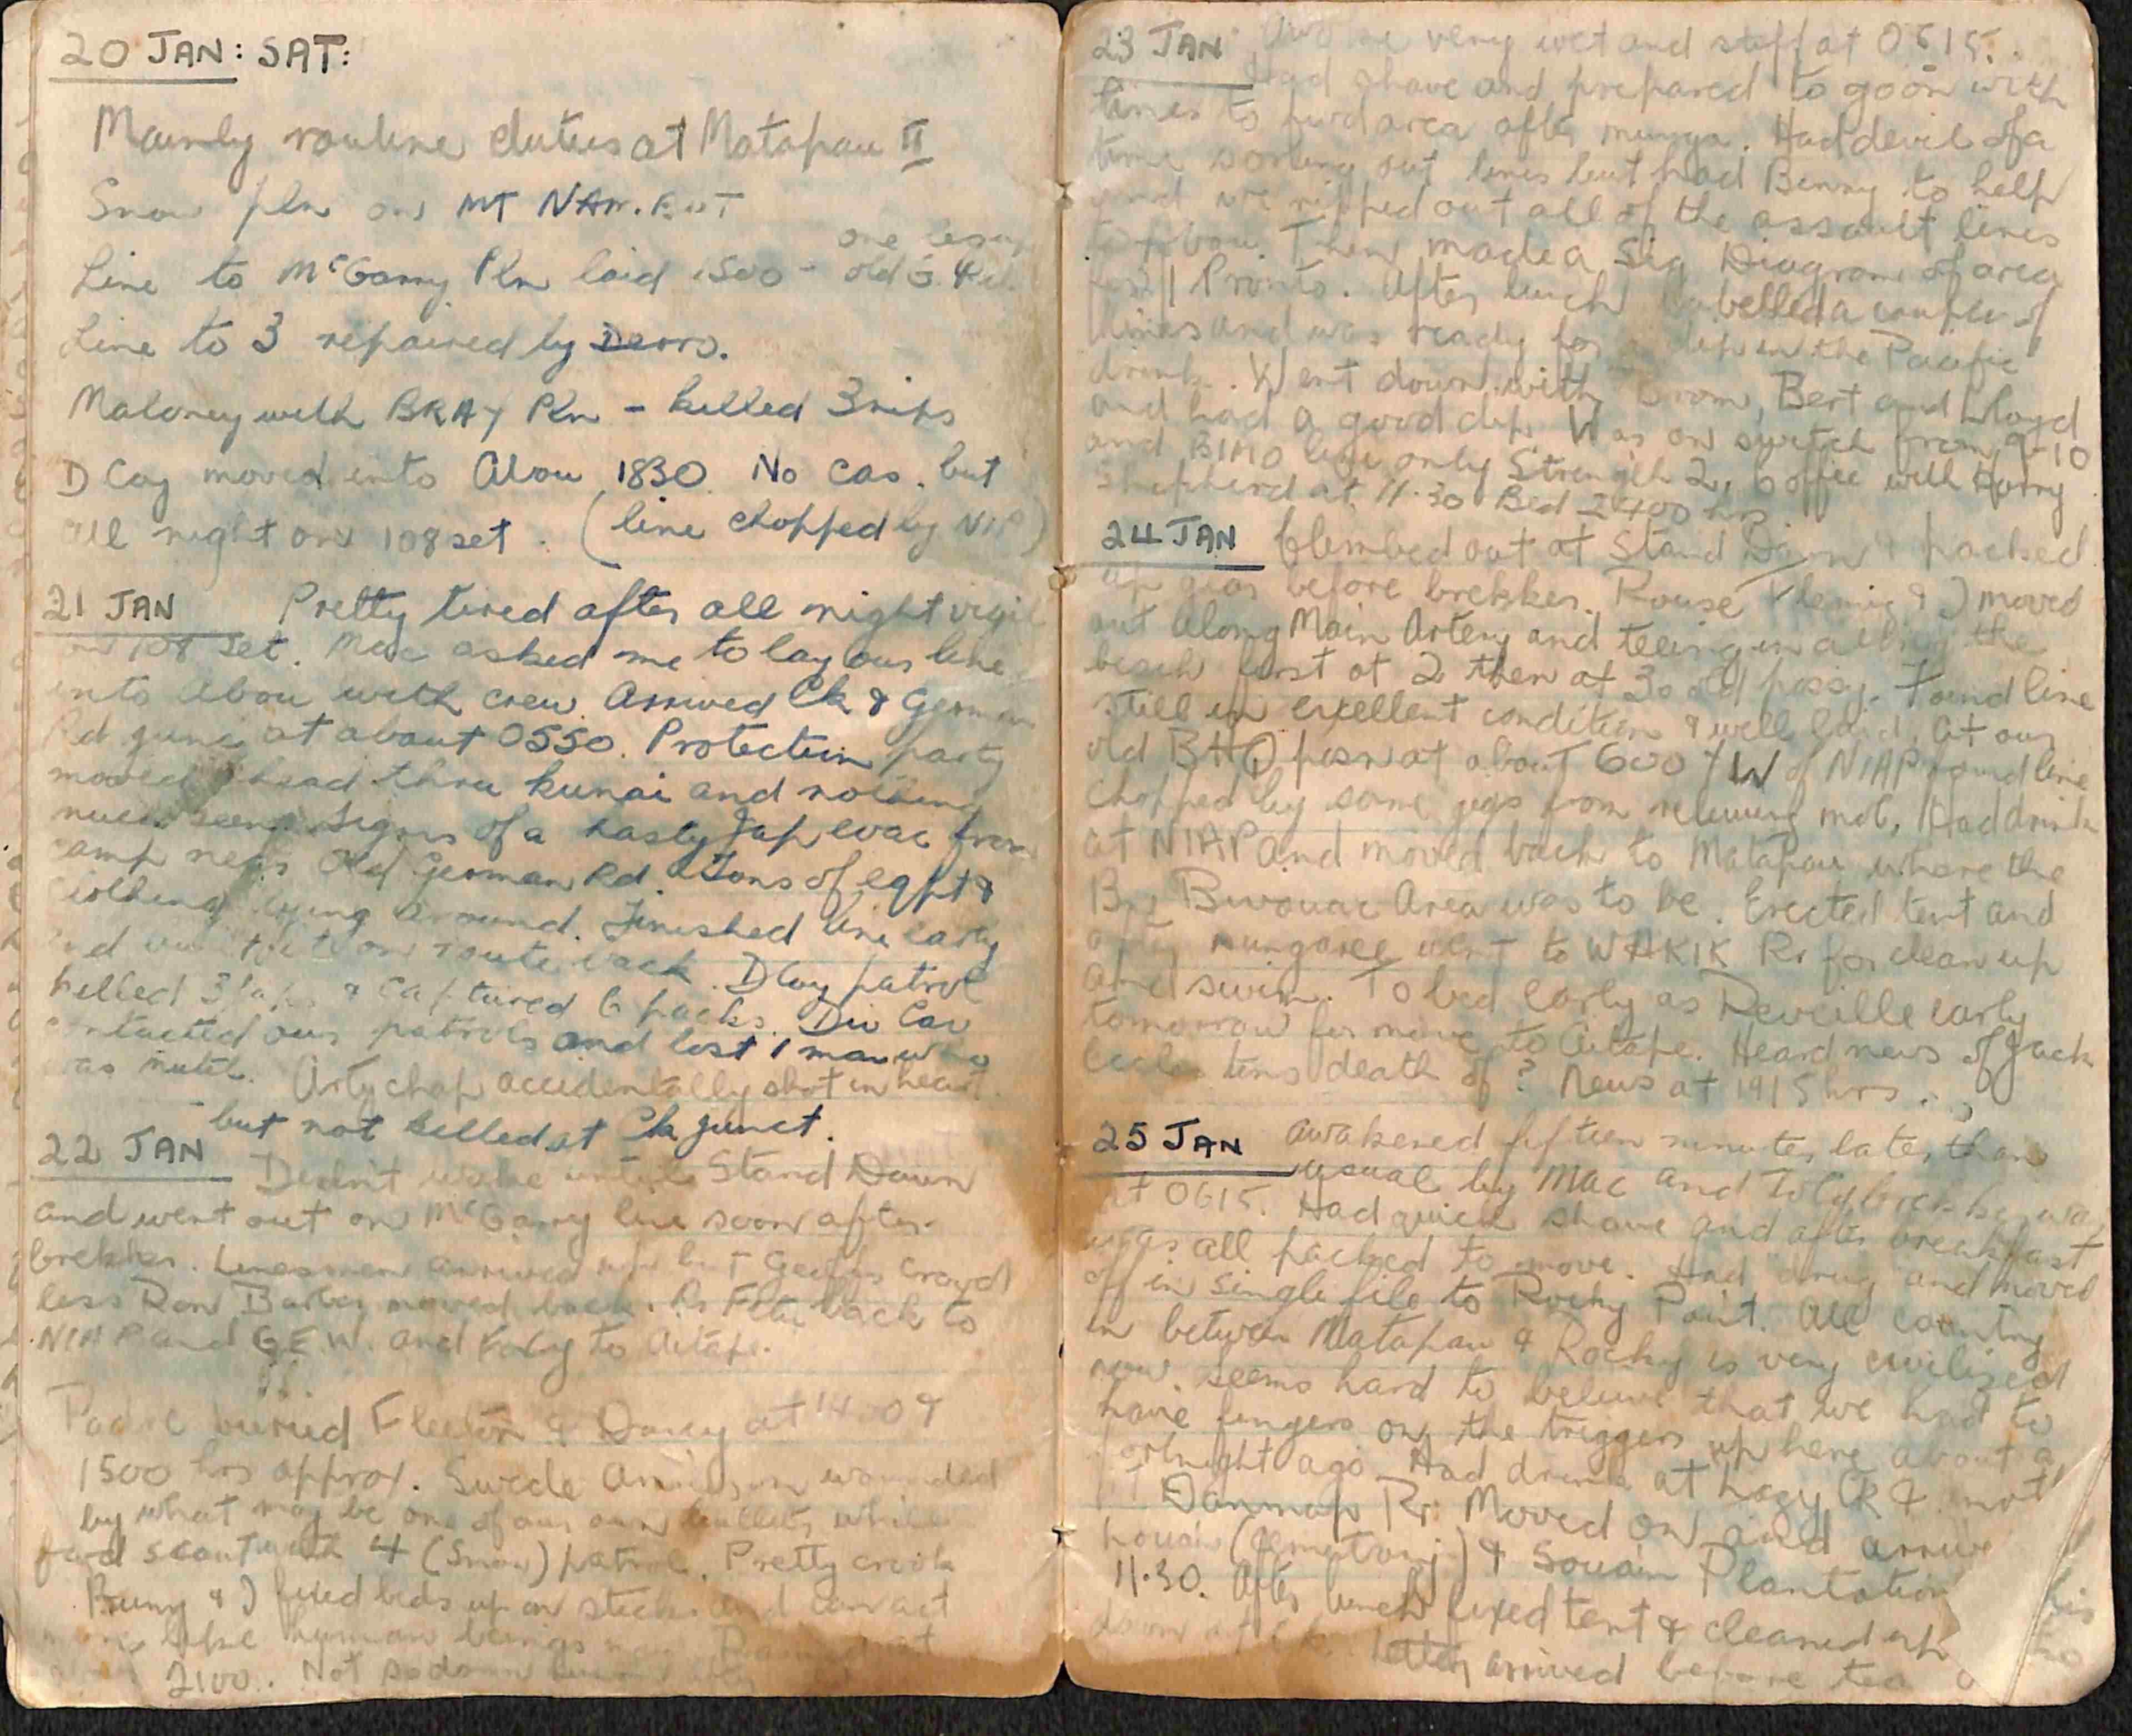 20 JAN: SAT:
Mainly routine duties at Matapau II
Snow pln on MT NAM.BUT
one lesay
Line to McGarry Pln laid 1500 - old 3.4
Line to 3 repaired by
Maloney with BRAY Pln - killed 3 nips
D Coy moved into Abau 1830. No cas. but
all night on 108 set. (line chopped by NIP)
21 JAN Pretty tired after all night vigil
on 108 set. Mac asked me to lay our line
into Abau with crew. Arrived Ck & German
Rd junc at about 0550. Protection party
moved ahead thru kunai and nothing
much seen. Signs of a hasty Jap evac from
camp near Old German Rd. Tons of eqpt &
clothing lying around. Finished line early
and route back. D Coy patrol
killed 3 Japs & captured 6 packs. Div Cav
contacted our patrols and lost 1 man who
was mutil. Arty chap accidentally shot in heart
- but not killed at Ck junct.
22 JAN Didn't wake until Stand Down
and went out on McGarry line soon after
brekker. Linesmen arrived up but Geoff's crowd
less Ron Barber moved back. Pete back to
NIAP and GEW. and to Aitape.
Padre buried & Darcy at
1500 hrs approx. Swede wounded
by what may be one of our own bullets while
fwd scout with 4 (Snow) patrol. Pretty crook
Bunny & I fixed beds up on sticks and can act
more like human beings now.
2100. Not so down
23 JAN Awoke very wet and stiff at 0615.
Had shave and prepared to go on with
lines to fwd area after munga. Had devil of a
time sorting out lines but had Benny to help
and we ripped out all of the assault lines
to Abau. Then made a Sig Diagram of area
for 11 Pronto. After lunch labelled a couple of
lines and was ready for a dip in the Pacific
drink. Went down with Brom, Bert and Lloyd
and had a good dip. Was on switch from 9-10
and B1MO line only Strength 2. Coffee with Harry
Shepherd at 11.30 Bed 2400 hrs.
24 JAN Climbed out at Stand Down & packed
up gear before brekker. Rouse Fleming & I moved
out along Main Artery and teeing in along the
beach first at 2 then at 3s old possy. Found line
still in excellent condition & well laid. At our
old BHQ posn at about 600 Y W of NIAP found line
chopped by some jogs from relieving mob. Had drink
at NIAP and moved back to Matapau where the
Bn Bivouac Area was to be. Erected tent and
after mungaree went to WAKIK Rr for clean up
and swim. To bed early as Reveille early
tomorrow for move to Aitape. Heard news of Jack
death of? News at 1915 hrs.
25 JAN Awakened fifteen minutes later than
usual by Mac and Toby brekker was
at 0615. Had quick shave and after breakfast
was all packed to move. Had and moved
off in single file to Rocky Point. All country
in between Matapau & Rocky is very civilized
now. seems hard to believe that we had to
have fingers on the triggers up here about a
fortnight ago. Had drinks at hazy CR & not
Danmap Rr. Moved on and arrive
(cemetary) & Souain Plantation
11.30. After lunch fixed tent & cleaned up
down at Letter arrived before tea